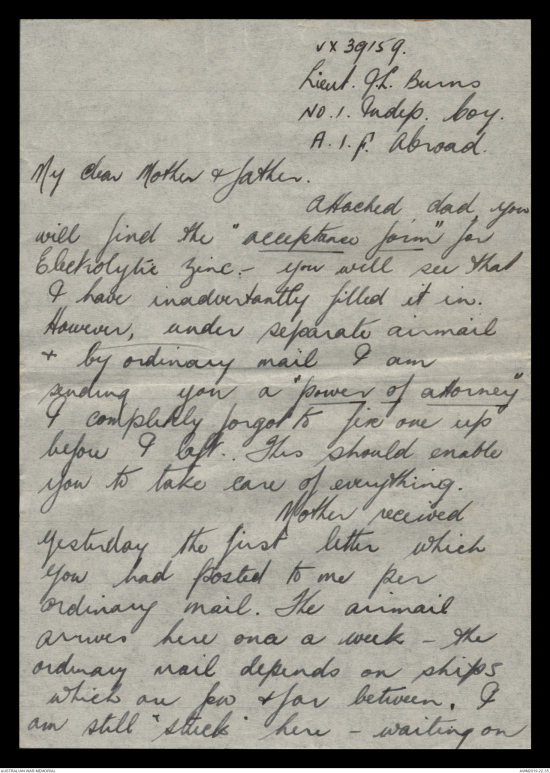 VX39159.
Lieut. J.L. Burns
No. 1. Indep. Coy.
A.I.F. Abroad.
My dear Mother & father.
Attached, dad, you
will find the "acceptance form" for
Electrolytic Zinc. - you will see that
I have inadvertantly filled it in.
However, under separate airmail
& by ordinary mail I am
sending you a "power of attorney"
I completely forgot to fix one up
before I left. This should enable
you to take care of everything.
Mother received
yesterday the first letter which
you had posted to me per
ordinary mail. The airmail
arrives here once a week - the
ordinary mail depends on ships
which are few & far between. I
am still "stuck" here - waiting on
AUSTRALIAN WAR MEMORIAL